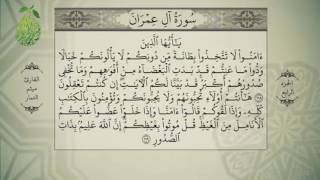 سُورَةُ آلِ عِمْرَانَ
يَـٰٓأَيُّهَا ٱلَّذِينَ
ءَامَنُوا۟ لَا تَتَّخِذُوا۟ بِطَانَةً مِّن دُونِكُمْ لَا يَأْلُونَكُمْ خَبَالًا
وَدُّوا۟ مَا عَنِتُّمْ قَدْ بَدَتِ ٱلْبَغْضَآءُ مِنْ أَفْوَٰهِهِمْ وَمَا تُخْفِى
صُدُورُهُمْ أَكْبَرُ قَدْ بَيَّنَّا لَكُمُ ٱلْـَٔايَـٰتِ إِن كُنتُمْ تَعْقِلُونَ
﴿١١٨﴾ هَـٰٓأَنتُمْ أُو۟لَآءِ تُحِبُّونَهُمْ وَلَا يُحِبُّونَكُمْ وَتُؤْمِنُونَ بِٱلْكِتَـٰبِ
كُلِّهِۦ وَإِذَا لَقُوكُمْ قَالُوٓا۟ ءَامَنَّا وَإِذَا خَلَوْا۟ عَضُّوا۟ عَلَيْكُمُ
ٱلْأَنَامِلَ مِنَ ٱلْغَيْظِ قُلْ مُوتُوا۟ بِغَيْظِكُمْ إِنَّ ٱللَّهَ عَلِيمٌۢ بِذَاتِ
ٱلصُّدُورِ ﴿١١٩﴾
الجزء
الرابع
القارئ
ميثم
التمار